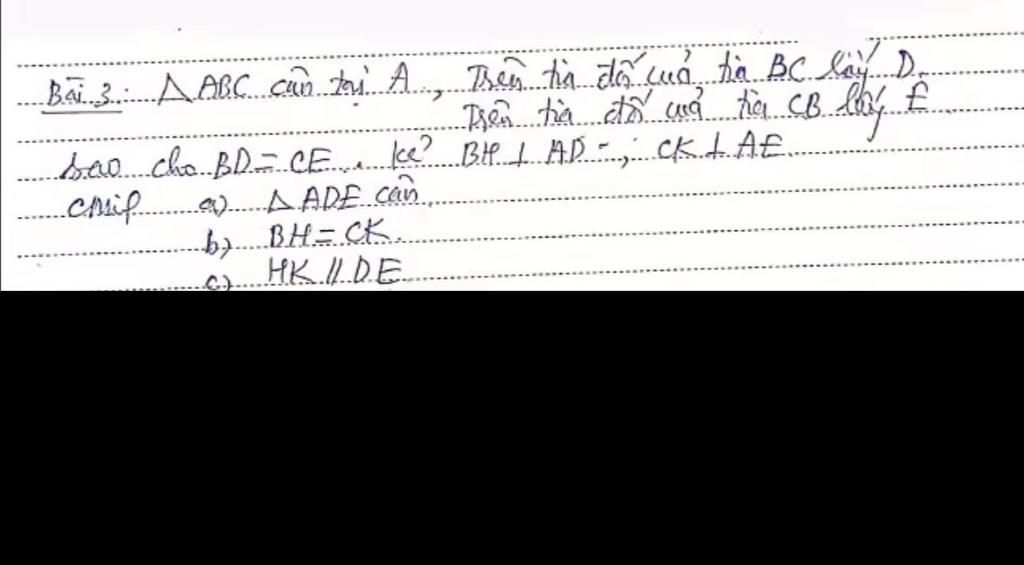 Bài 3: △ABC cân tại A, Trên tia đối của tia BC lấy D.
Trên tia đối của tia CB lấy E
sao cho BD = CE. kẻ BH ⊥ AD; CK ⊥ AE
CMR a) △ADE cân.
b) BH = CK.
c) HK // DE